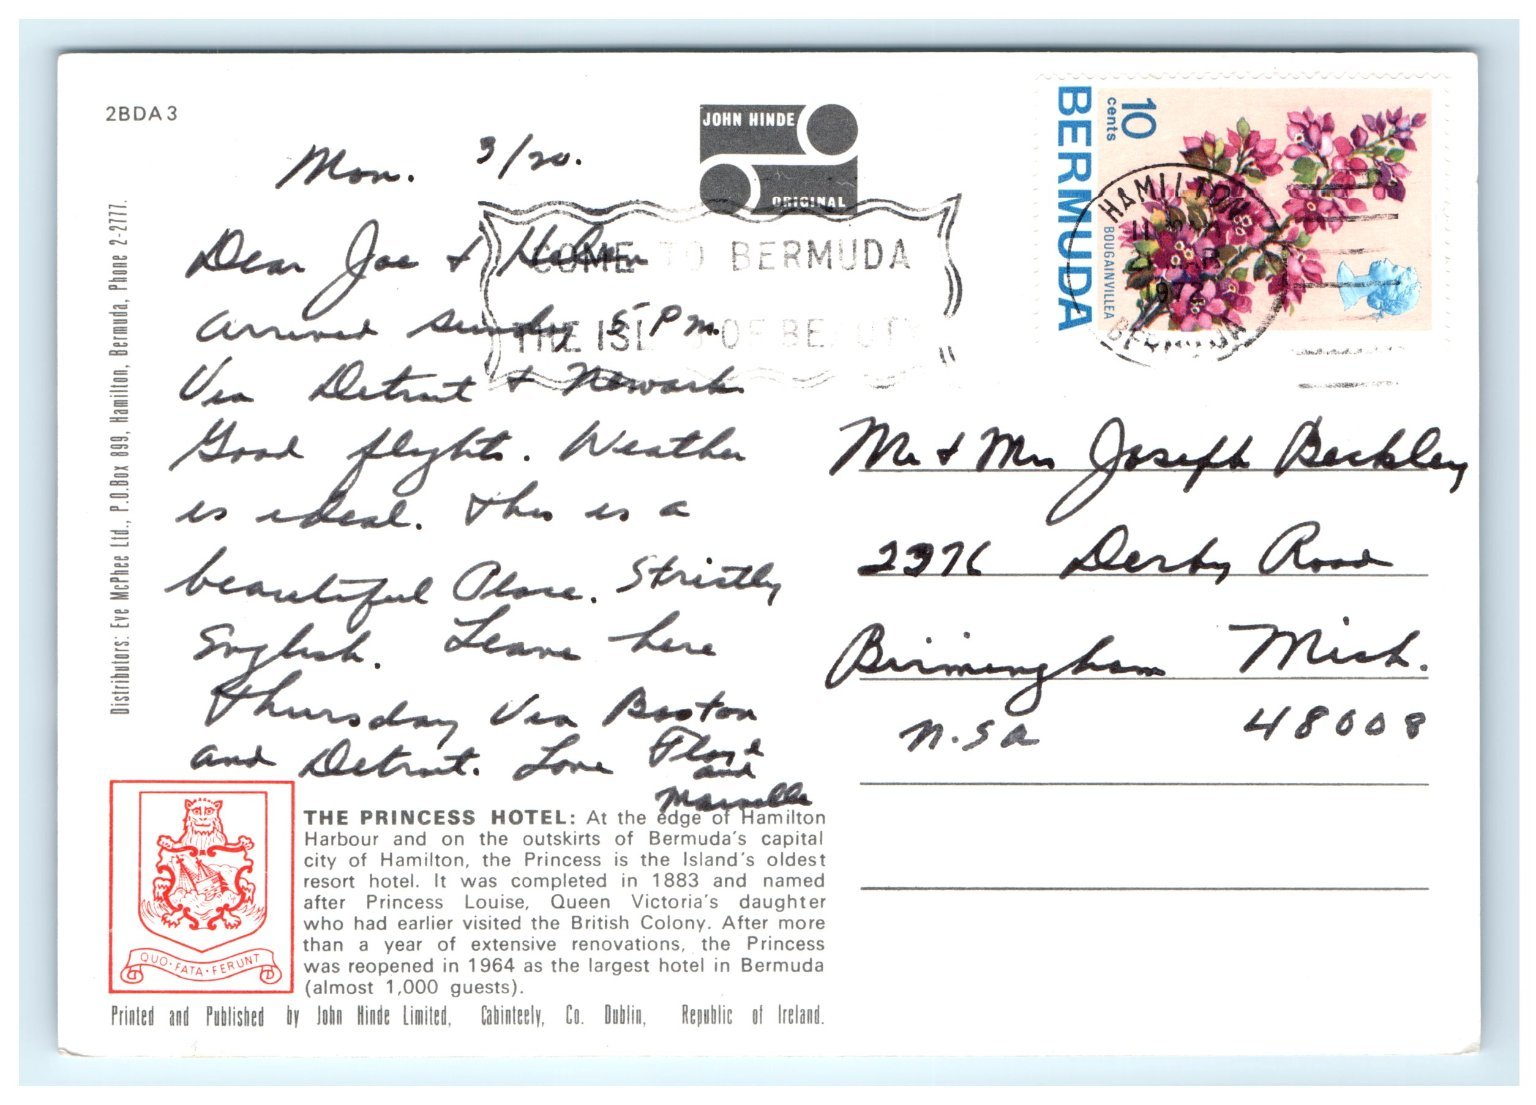 2BDA3
JOHN HINDE
ORIGINAL
Mon. 3/20.
Dear Joe & Helen
arrived Sunday 5 PM.
Via Detroit & Newark
Good flights. Weather
is ideal. This is a
beautiful Place. Strictly
English. Leave here
Thursday Via Boston
and Detroit. Love Floyd
and
COME TO BERMUDA
THE ISLAND OF BEAUTY
BERMUDA
10
cents
BOUGAINVILLEA
HAMILTON
BERMUDA
Mr & Mrs Joseph Beckley
2376 Derby Road
Birmingham Mich.
U.S.A 48008
Distributors: Eve McPhee Ltd., P.O.Box 899, Hamilton, Bermuda, Phone 2-2777.
QUO·FATA·FERUNT
THE PRINCESS HOTEL: At the edge of Hamilton
Harbour and on the outskirts of Bermuda's capital
city of Hamilton, the Princess is the Island's oldest
resort hotel. It was completed in 1883 and named
after Princess Louise, Queen Victoria's daughter
who had earlier visited the British Colony. After more
than a year of extensive renovations, the Princess
was reopened in 1964 as the largest hotel in Bermuda
(almost 1,000 guests).
Printed and Published by John Hinde Limited, Cabinteely, Co. Dublin, Republic of Ireland.